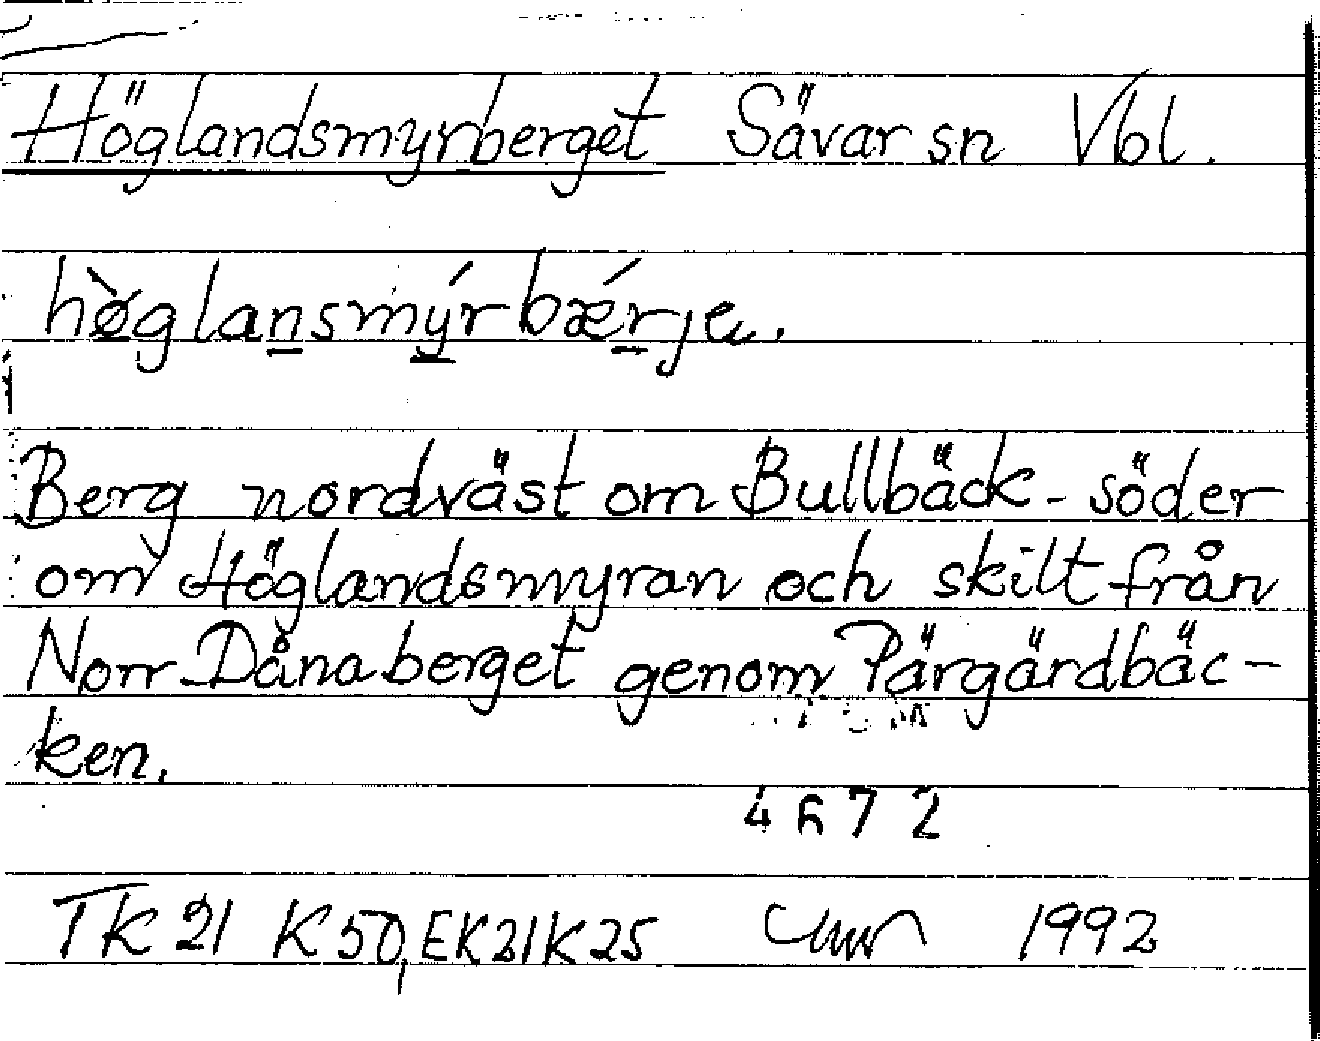 Höglandsmyrberget Sävar sn Vbl.
hø̀glansmýrbǽrje.
Berg nordväst om Bullbäck - söder
om Höglandsmyran och skilt från
Norr Dånaberget genom Pärgärdbäc-
ken.
4672
TK 21 K 50, EK 21 K 25 1992